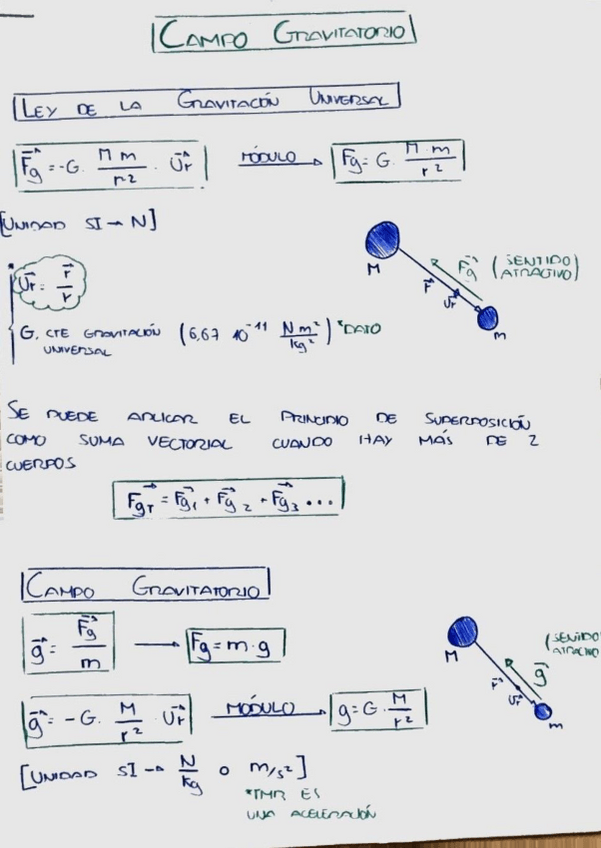 CAMPO GRAVITATORIO
LEY DE LA GRAVITACIÓN UNIVERSAL
F⃗g = -G · M m / r² · U⃗r MÓDULO → Fg = G · M · m / r²
[UNIDAD SI → N]
M F⃗g (SENTIDO ATRACTIVO)
r⃗ U⃗r m
U⃗r = r⃗ / r
G, CTE GRAVITACIÓN UNIVERSAL (6,67 10⁻¹¹ N m² / kg²) *DATO
SE PUEDE APLICAR EL PRINCIPIO DE SUPERPOSICIÓN
COMO SUMA VECTORIAL CUANDO HAY MÁS DE 2
CUERPOS
F⃗gT = F⃗g1 + F⃗g2 + F⃗g3 ...
CAMPO GRAVITATORIO
g⃗ = F⃗g / m → Fg = m · g
M (SENTIDO ATRACTIVO)
g⃗ r⃗ U⃗r m
g⃗ = -G · M / r² · U⃗r MÓDULO → g = G · M / r²
[UNIDAD SI → N / kg o m/s²]
*TMB ES
UNA ACELERACIÓN